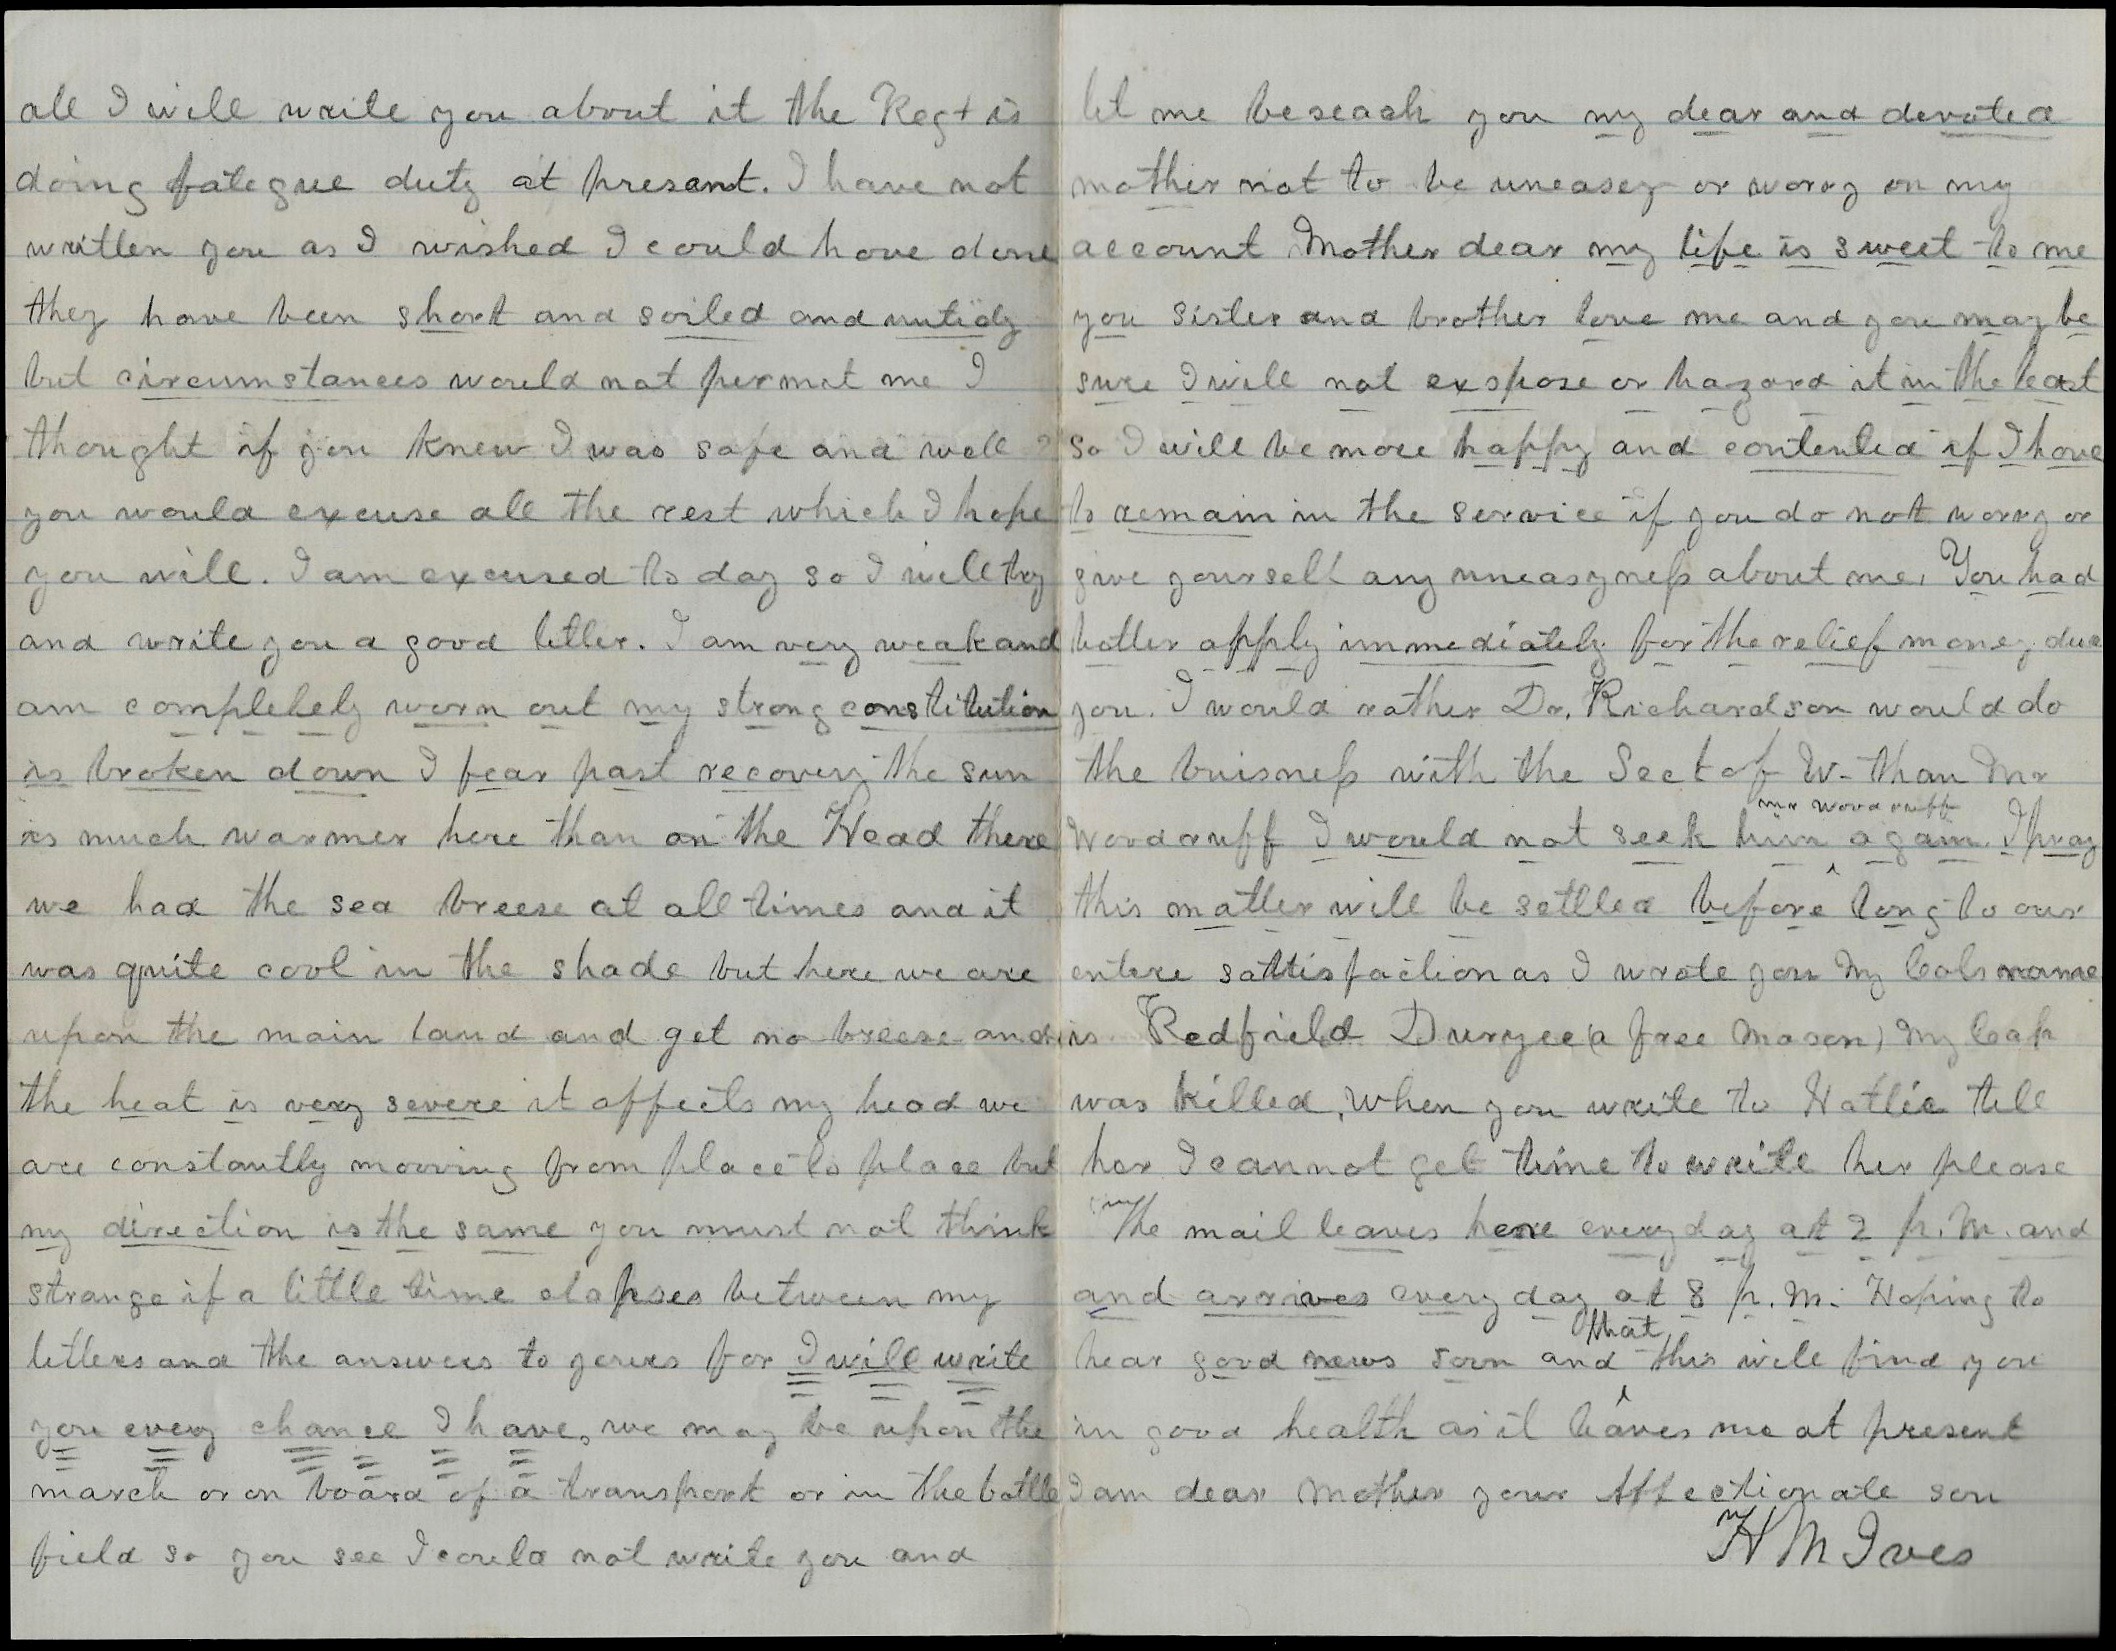 all I will write you about it the Regt is
doing fategue duty at present. I have not
written you as I wished I could have done
they have been short and soiled and untidy
but circumstances would not permit me I
thought if you knew I was safe and well
you would excuse all the rest which I hope
you will. I am excused to day so I will try
and write you a good letter. I am very weak and
am completely worn out my strong constitution
is broken down I fear past recovery the sun
is much warmer here than on the Head there
we had the sea breese at all times and it
was quite cool in the shade but here we are
upon the main land and get no breese and
the heat is very severe it affects my head we
are constantly mooving from place to place but
my direction is the same you must not think
strange if a little time elapses between my
letters and the answers to yours for I will write
you every chance I have, we may be upon the
march or on board of a transport or in the battle
field so you see I could not write you and
let me beseach you my dear and devoted
mother not to be uneasey or worry on my
account Mother dear my life is sweet to me
you sister and brother love me and you may be
sure I will not exspose or hazard it in the least
so I will be more happy and contented if I have
to remain in the service if you do not worry or
give yourself any uneasyness about me. You had
better apply immediately for the relief money due
you. I would rather Dr. Richardson would do
the buisness with the Sect of W- than Mr
Woodruff I would not seek him mr woodruff again. I pray
this matter will be settled before long to our
entire sattisfaction as I wrote you My Cols name
is Redfield Duryee (a free Mason) My Cap
was killed, When you write to Hattie tell
her I cannot get time to write her please
The mail leaves here every day at 2 p. M. and
and arrives every day at 8 p. M. Hoping to
hear good news soon and that this will find you
in good health as it leaves me at present
I am dear Mother your Affectionate son
H M Ives